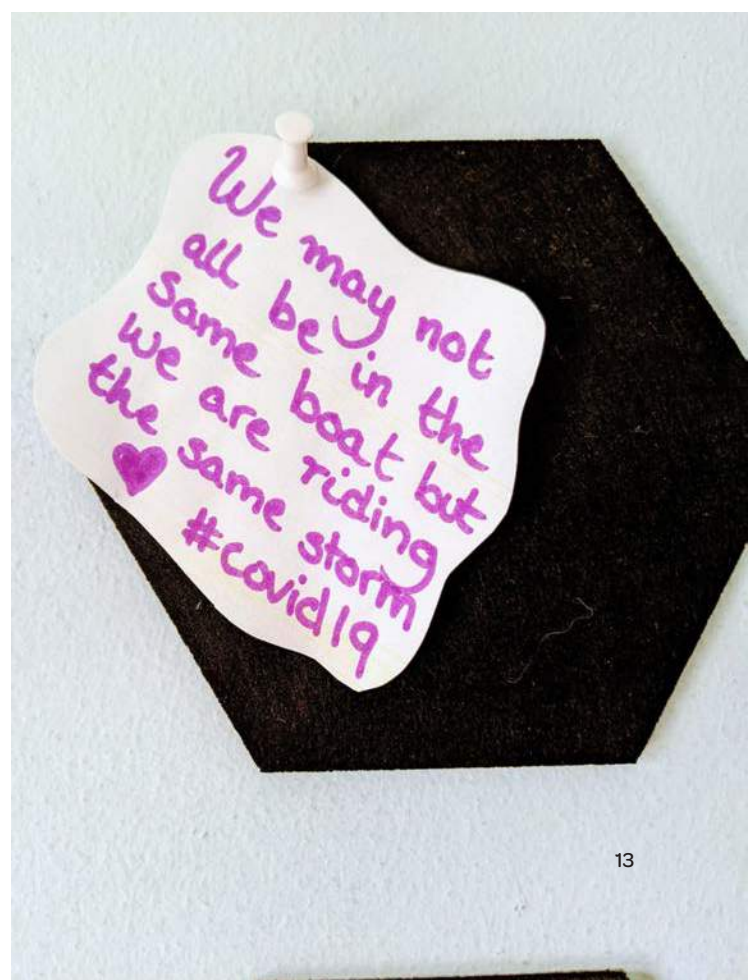 We may not
all be in the
same boat but
we are riding
the same storm
♥ #covid19
13